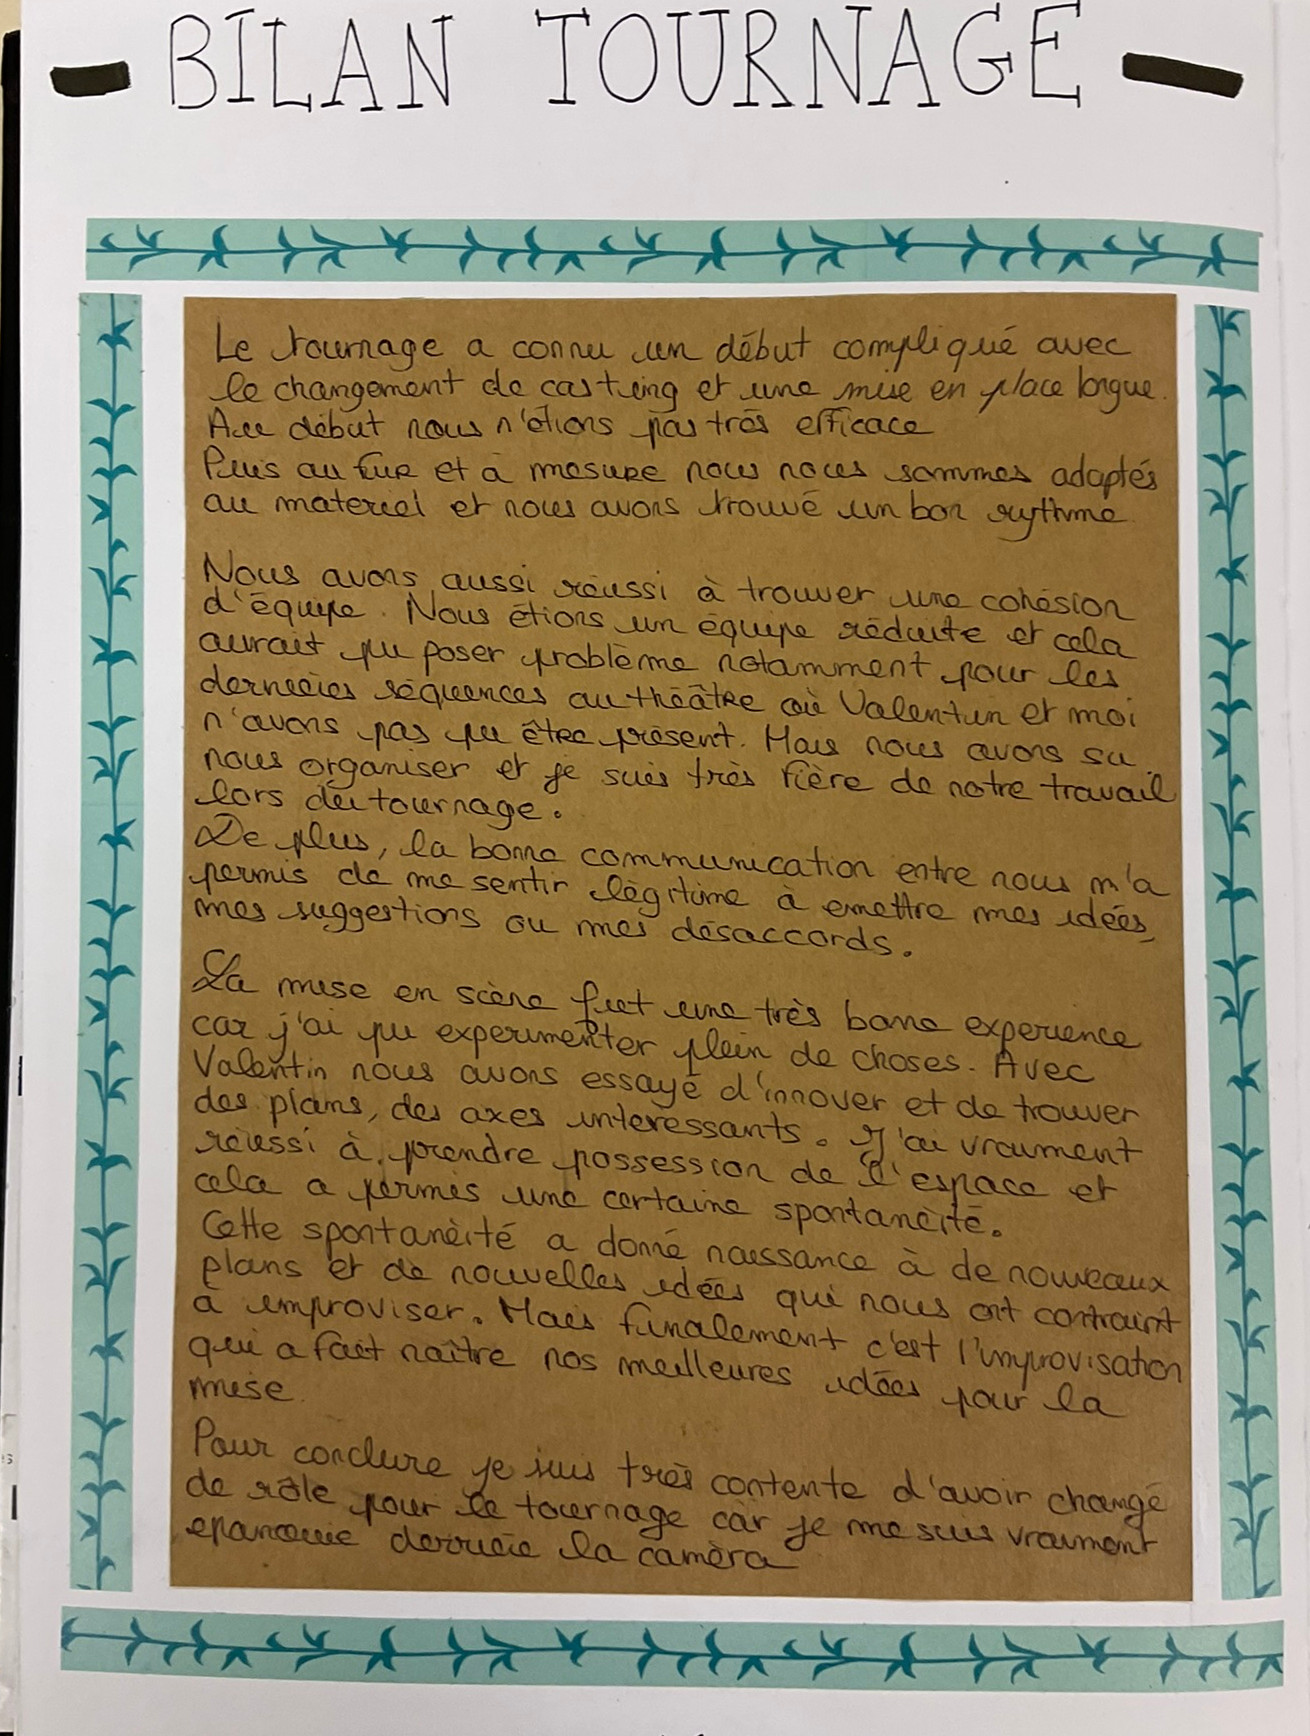 - BILAN TOURNAGE -
Le tournage a connu un début compliqué avec
le changement de casting et une mise en place longue.
Au début nous n'étions pas très efficace
Puis au fur et à mesure nous nous sommes adaptés
au materiel et nous avons trouvé un bon rythme
Nous avons aussi réussi à trouver une cohésion
d'équipe. Nous étions un équipe réduite et cela
aurait pu poser problème notamment pour les
dernières séquences au théâtre où Valentin et moi
n'avons pas pu être présent. Mais nous avons su
nous organiser et je suis très fière de notre travail
lors du tournage.
De plus, la bonne communication entre nous m'a
permis de me sentir légitime à emettre mes idées,
mes suggestions ou mes désaccords.
La mise en scène fut une très bonne experience
car j'ai pu experimenter plein de choses. Avec
Valentin nous avons essayé d'innover et de trouver
des plans, des axes interessants. J'ai vraiment
réussi à prendre possession de l'espace et
cela a permis une certaine spontanèité.
Cette spontanèité a donné naissance à de nouveaux
plans et de nouvelles idées qui nous ont contraint
à improviser. Mais finalement c'est l'improvisation
qui a fait naître nos meilleures idées pour la
mise
Pour conclure je suis très contente d'avoir changé
de rôle pour le tournage car je me suis vraiment
epanouie derrière la camèra